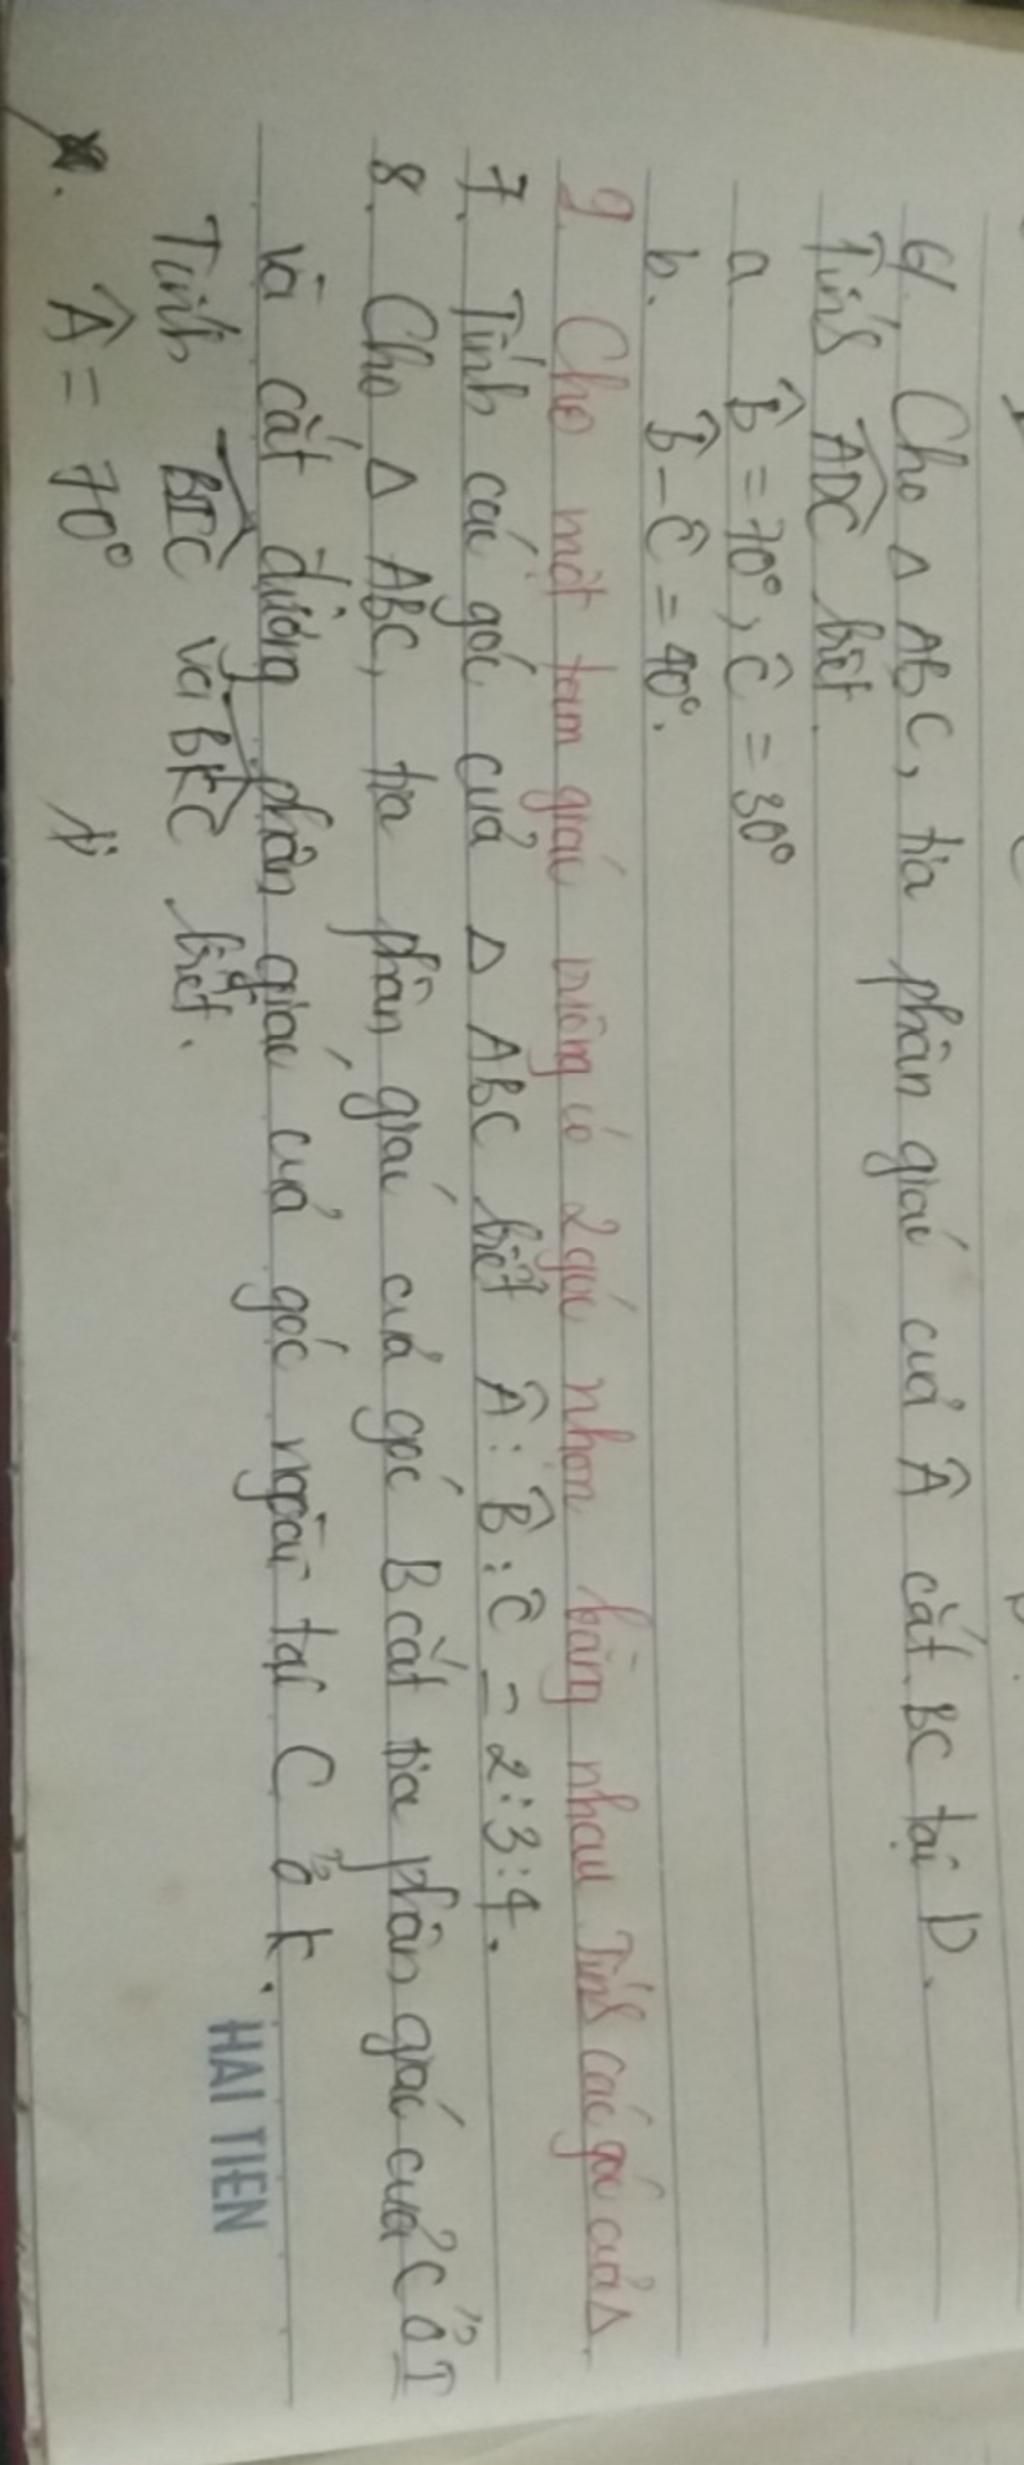 6/. Cho Δ ABC, tia phân giác của Â cắt BC tại D.
Tính ADC biết.
a B̂ = 70°, Ĉ = 30°
b. B̂ - Ĉ = 40°.
9. Cho một tam giác vuông có 2 góc nhọn bằng nhau. Tính các góc của Δ.
7. Tính các góc của Δ ABC biết Â : B̂ : Ĉ = 2:3:4.
8. Cho Δ ABC, tia phân giác của góc B cắt tia phân giác của C ở I
và cắt đường phân giác của góc ngoài tại C ở K.
Tính BIC và BKC biết.
Â = 70°
HAI TIEN